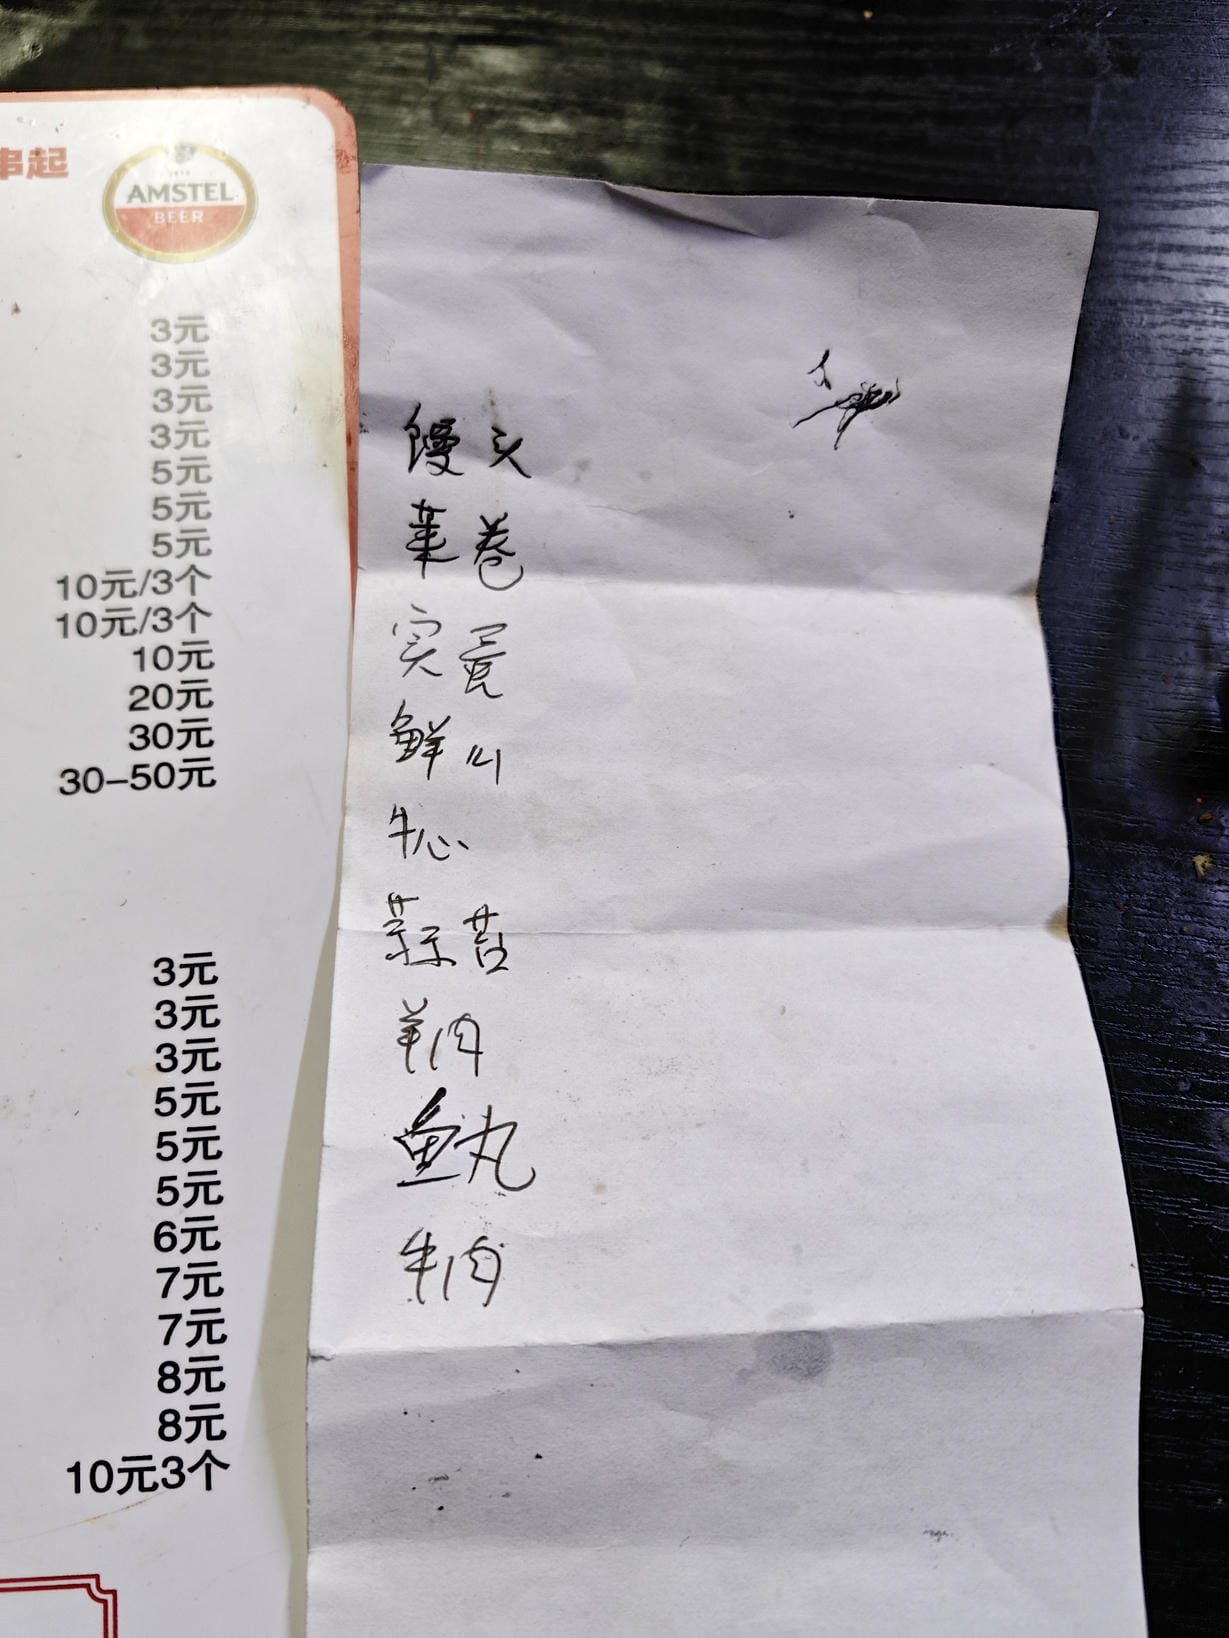 串起
AMSTEL
BEER
3元
3元
3元
3元
5元
5元
5元
10元/3个
10元/3个
10元
20元
30元
30-50元
3元
3元
3元
5元
5元
5元
6元
7元
7元
8元
8元
10元3个
馒头
菜卷
实蛋
鲜
牛心
蒜苔
羊肉
鱼丸
牛肉